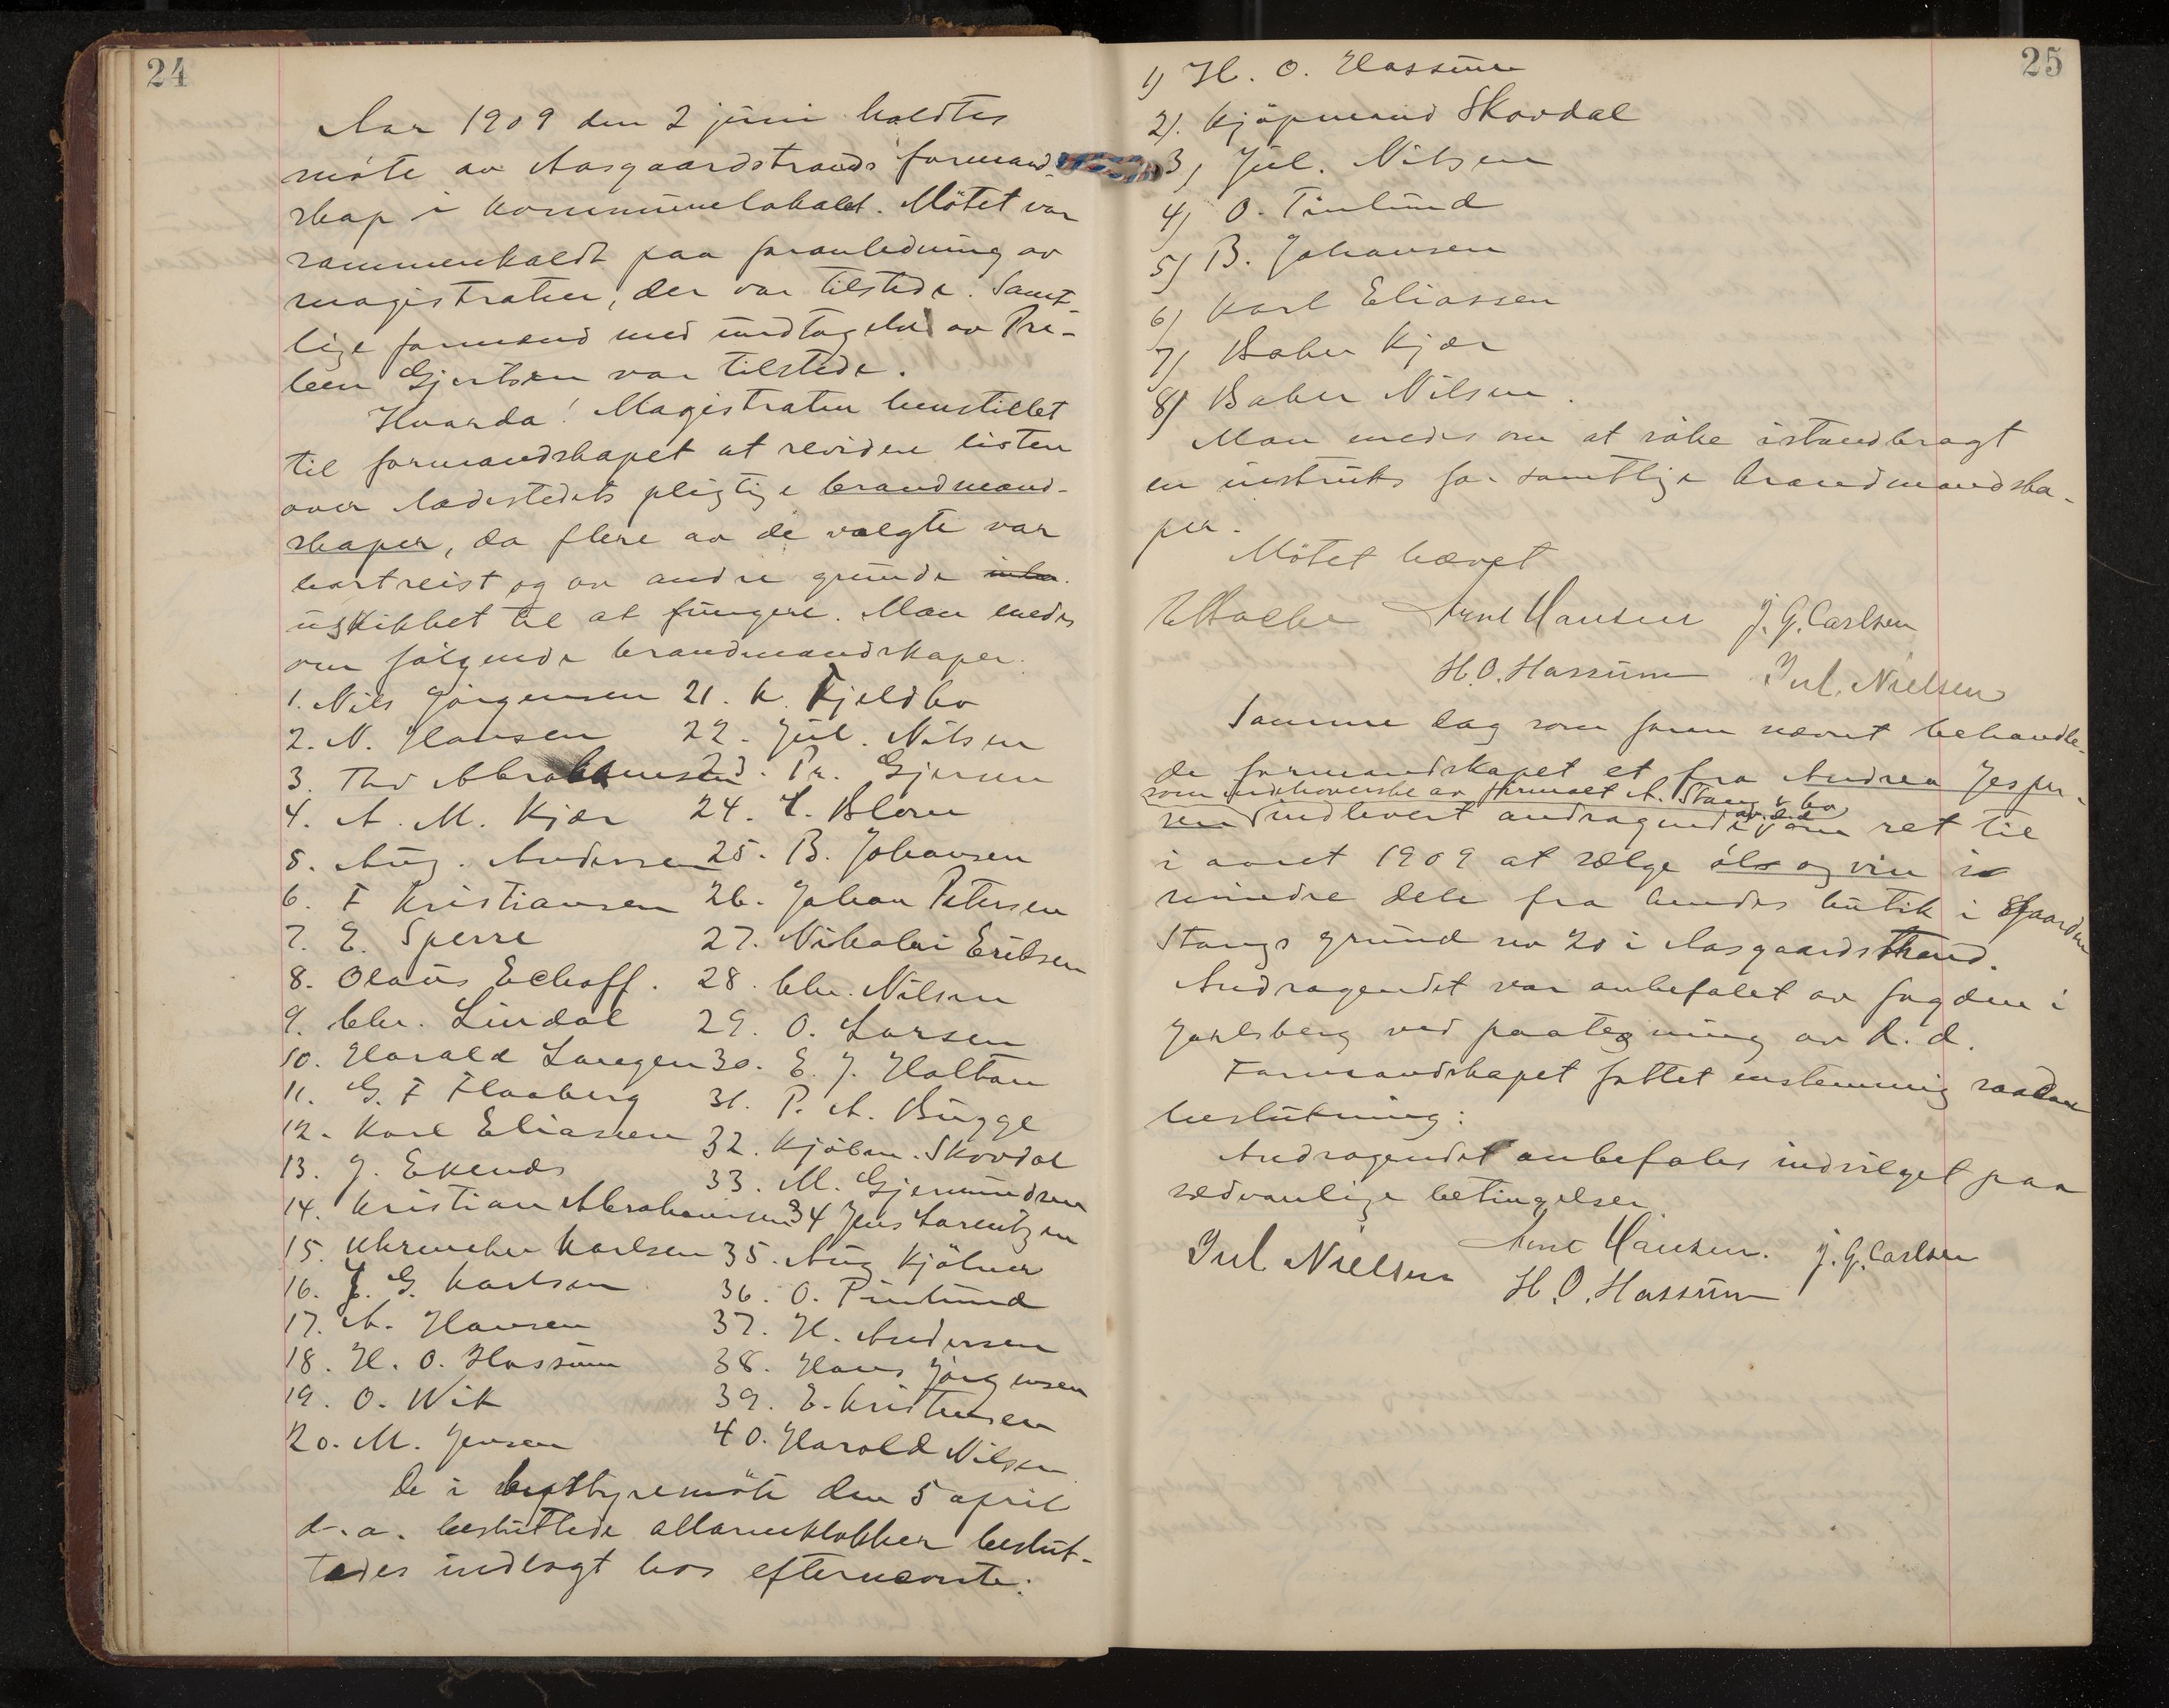 24
Aar 1909 den 2 juni holdtes
møte av Aasgaardstrands formand-
skap i kommunelokalet. Mötet var
sammenkaldt paa foranledning av
magistraten, der var tilstede. Samt-
lige formænd med undtagelse av Pre-
ben Gjertsen var tilstede.
Hvorda! Magistraten henstillet
til formandskapet at revidere listen
over ladestedets pligtige brandmand-
skaper, da flere av de valgte var
bortreist og av andre grunde
uskikket til at fungere. Man enedes
om følgende brandmandskaper.
1. Nils Jörgensen 21. K. Fjeldbo
2. N. Hansen 22. Jul. Nilsen
3. Thv Abrahamsen 23. Pr. Gjersen
4. A. M. Kjær 24. E. Blom
5. Aug. Andersen 25. B. Johansen
6. F Kristiansen 26. Johan Petersen
7. E. Sperre 27. Nikolai Eriksen
8. Olaus Echoff. 28. Chr. Nilsen
9. Chr. Lindal 29. O. Larsen
10. Harald Langen 30. E. J. Holtan
11. G. F Flaaberg 31. P. A. Bugge
12. Karl Eliassen 32. Kjöbm. Skovdal
13. J. Ekenes 33. M. Gjermundsen
14. Kristian Abrahamsen 34 Jens Lorentzen
15. Uhrmaker Karlsen 35. Aug Kjölner
16. J. G. Karlsen 36. O. Finlund
17. A. Hansen 37. H. Andersen
18. H. O. Hassum 38. Hans Jörgensen
19. O. Wik 39. E. Kristensen
20. M. Jensen 40. Harald Nilsen
De i bystyremöte den 5 april
d. a. besluttede allarmklokker beslut-
tedes indlagt hos efternævnte:
25
1) H. O. Hassum
2). Kjöpmand Skovdal
3) Jul. Nilsen
4) O. Finlund
5) B. Johansen
6) Karl Eliassen
7) Baker Kjær
8) Baker Nilsen.
Man enedes om at söke istandbragt
en instruks for samtlige brandmandska-
per.
Mötet hævet
Arnt Hansen J. G. Carlsen
H. O. Hassum Jul. Nielsen
Samme dag som foran nævnt behandle-
de formandskapet et fra Andrea Jesper-
som indehaverske av firmaet A. Stang & Co
sen indlevert andragende om ret til
i aaret 1909 at sælge öl og vin i
mindre dele fra hendes butik i gaarden
Stangs grund no 20 i Aasgaardstrand.
Andragendet var anbefalet av fogden i
Jarlsberg ved paategning av d. d.
Formandskapet fattet enstemmig saadan
beslutning:
Andragendet anbefales indvilget paa
sædvanlige betingelser.
Jul Nielsen Arnt Hansen. J. G. Carlsen
H. O. Hassum